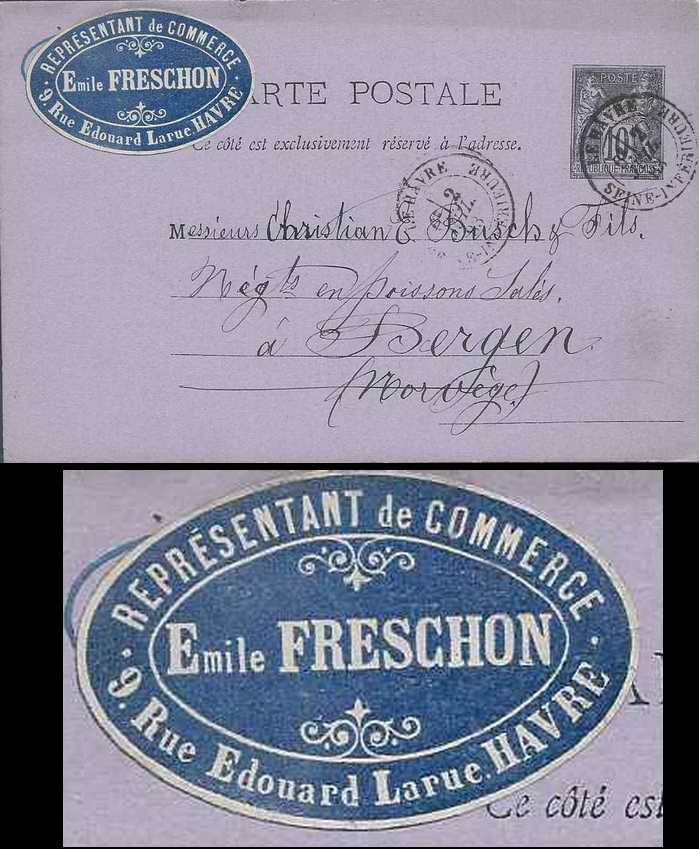 REPRÉSENTANT de COMMERCE
Emile FRESCHON
9. Rue Edouard Larue. HAVRE
ARTE POSTALE
Ce côté est exclusivement réservé à l'adresse.
POSTE
10
REPUBLIQUE FRANCAISE
LE HAVRE
SEINE-INFERIEURE
LE HAVRE
2
Messieurs Christian E Busch & Fils.
Négts en poissons Salés.
à Bergen
(Norvège)
REPRÉSENTANT de COMMERCE
Emile FRESCHON
9. Rue Edouard Larue. HAVRE
Ce côté est